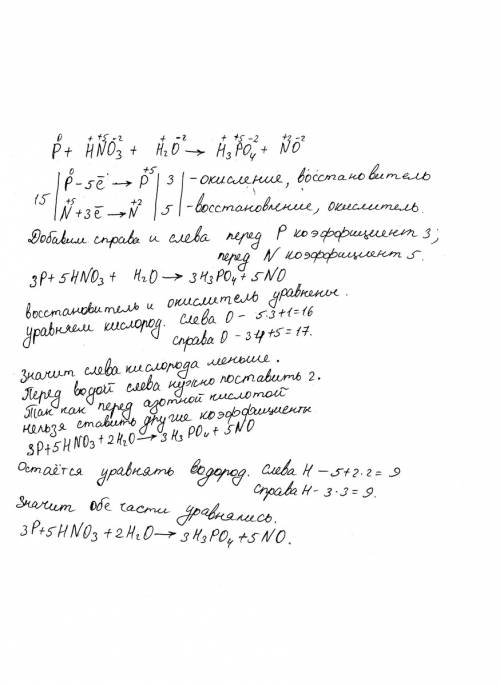 P⁰ + H⁺N⁺⁵O₃⁻² + H₂⁺O⁻² → H₃⁺P⁺⁵O₄⁻² + N⁺²O⁻²
15 | P⁰ - 5ē → P⁺⁵ | 3 | - окисление, восстановитель
N⁺⁵ + 3ē → N⁺² | 5 | - восстановление, окислитель.
Добавим справа и слева перед P коэффициент 3;
перед N коэффициент 5.
3P + 5HNO₃ + H₂O → 3H₃PO₄ + 5NO
восстановитель и окислитель уравнены.
уравняем кислород. Слева O - 5·3+1=16
справа O - 3·4+5=17.
Значит слева кислорода меньше.
Перед водой слева нужно поставить 2.
Так как перед азотной кислотой
нельзя ставить другие коэффициенты
3P+5HNO₃+2H₂O → 3H₃PO₄ + 5NO
Остаётся уравнять водород. Слева H - 5+2·2 = 9
справа H - 3·3 = 9.
Значит обе части уравнялись.
3P+5HNO₃ + 2H₂O → 3H₃PO₄ + 5NO.